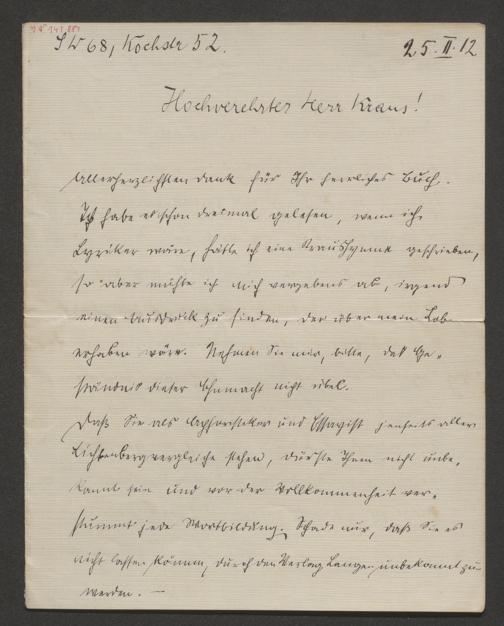 SW 68, Kochstr 52.
25. II. 12
Hochverehrter Herr Kraus!
Allerherzlichsten Dank für Ihr herrliches Buch.
Ich habe es schon dreimal gelesen, wenn ich
Lyriker wäre, hätte ich eine Kraushymne geschrieben,
so aber mühte ich mich vergebens ab, irgend
einen Ausdruck zu finden, der über mein Lob
erhaben wäre. Nehmen Sie mir, bitte, das Ge-
ständnis dieser Ohnmacht nicht übel.
Daß Sie als Aphoristiker und Essayist jenseits aller
Lichtenbergvergleiche stehen, dürfte Ihnen nicht unbe-
kannt sein und vor der Vollkommenheit ver-
stummt jede Wortbildung. Schade nur, daß Sie es
nicht lassen können, durch den Verlag Langen unbekannt zu
werden. —